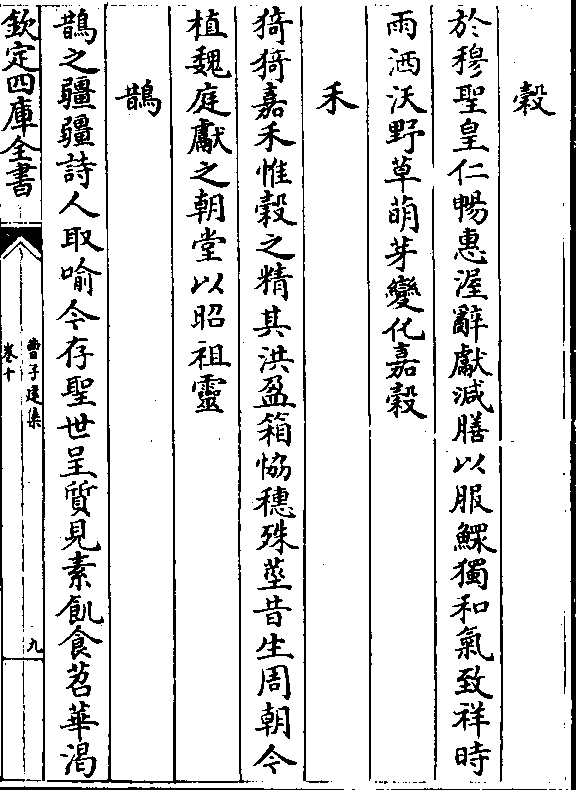 穀
於穆聖皇仁暢惠渥辭獻減膳以服鰥獨和氣致祥時
雨洒沃野草萌芽變化嘉穀
禾
猗猗嘉禾惟穀之精其洪盈箱恊穗殊莖昔生周朝今
植魏庭獻之朝堂以昭祖靈
鵲
鵲之疆疆詩人取喻今存聖世呈質見素飢食苕華渴
欽定四庫全書
曹子建集
卷十
九